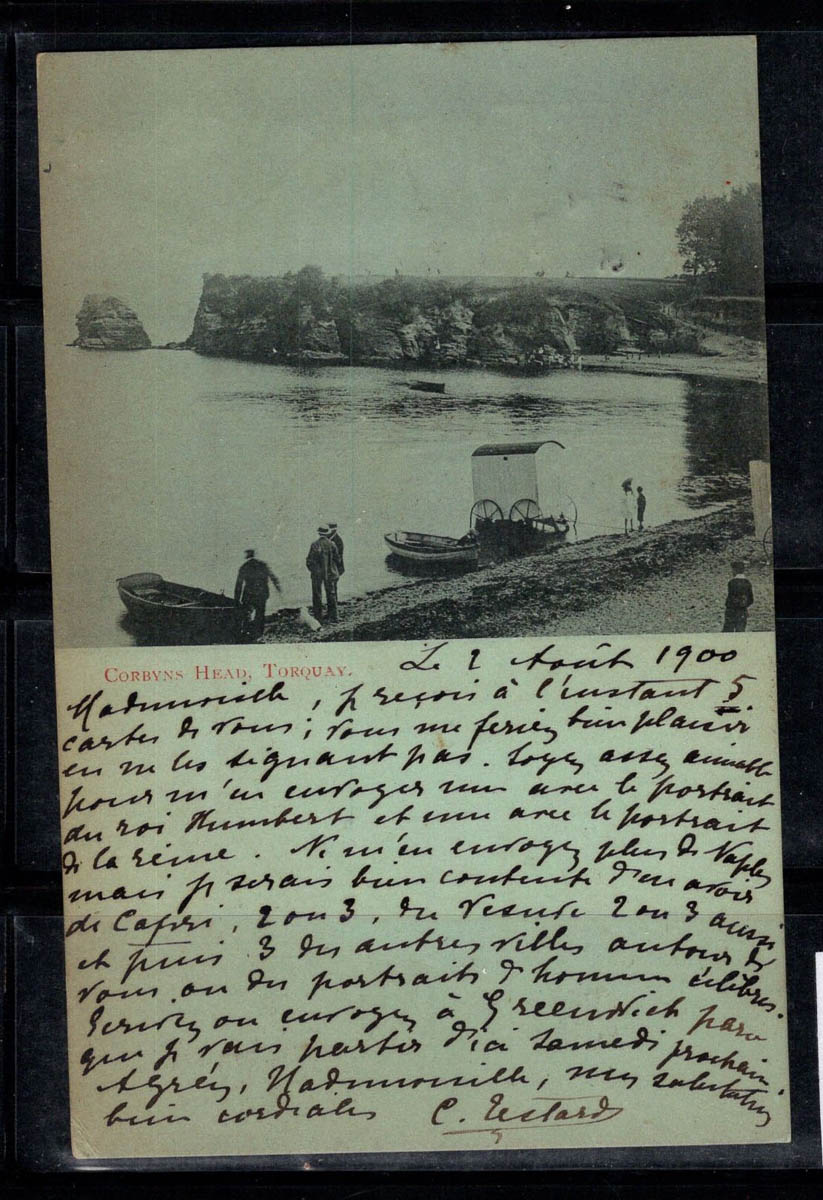 CORBYNS HEAD, TORQUAY.
Le 2 Août 1900
Mademoiselle, je reçois à l'instant 5
cartes de vous ; vous me feriez bien plaisir
en ne les signant pas. Soyez assez aimable
pour m'en envoyer une avec le portrait
du roi Humbert et une avec le portrait
de la reine. Ne m'en envoyez plus de Naples
mais je serais bien contente d'en avoir
de Capri, 2 ou 3, du Vesuve 2 ou 3 aussi
et puis 3 des autres villes autour de
vous ou des portraits d'hommes célèbres.
Ecrivez ou envoyez à Greenwich parce
que je vais partir d'ici samedi prochain.
Agréez, Mademoiselle, mes salutations
bien cordiales C. Testard